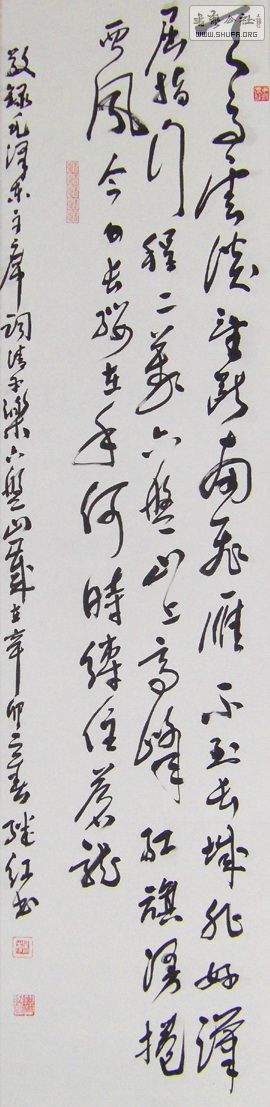 书法公社
WWW.SHUFA.ORG
天高雲淡望斷南飛雁不到長城非好漢
屈指行程二萬六盤山上高峰紅旗漫捲
西風今日長纓在手何時縛住蒼龍
敬錄毛澤東主席詞清平樂六盤山歲在辛卯之春繼红书